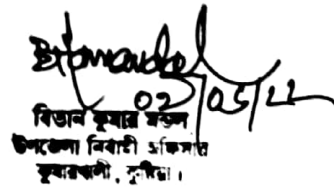 02/05/22
বিতান কুমার মন্ডল
উপজেলা নির্বাহী অফিসার
কুমারখালী, কুষ্টিয়া।